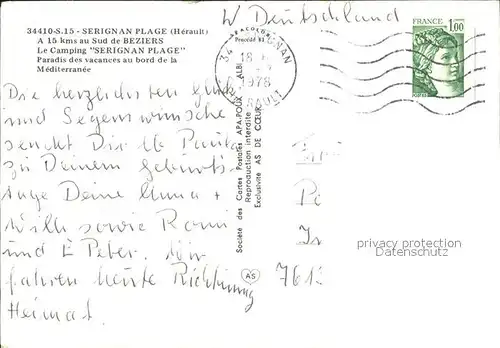 34410-S.15 - SERIGNAN PLAGE (Hérault)
A 15 kms au Sud de BEZIERS
Le Camping "SERIGNAN PLAGE"
Paradis des vacances au bord de la
Méditerranée
W Deutschland
34 SERIGNAN
18
1978
HERAULT
FRANCE
1,00
Die herzlichsten Glück
und Segenswünsche
sendet Dir
zu Deinem Geburts-
tage Deine Emma +
Willi sowie Romi
und E Peter. Wir
fahren heute Richtung
Heimat.
Société des Cartes Postales APA-POUX - ALBI
Reproduction interdite
Exclusivité AS DE CŒUR
AS
761
privacy protection
Datenschutz